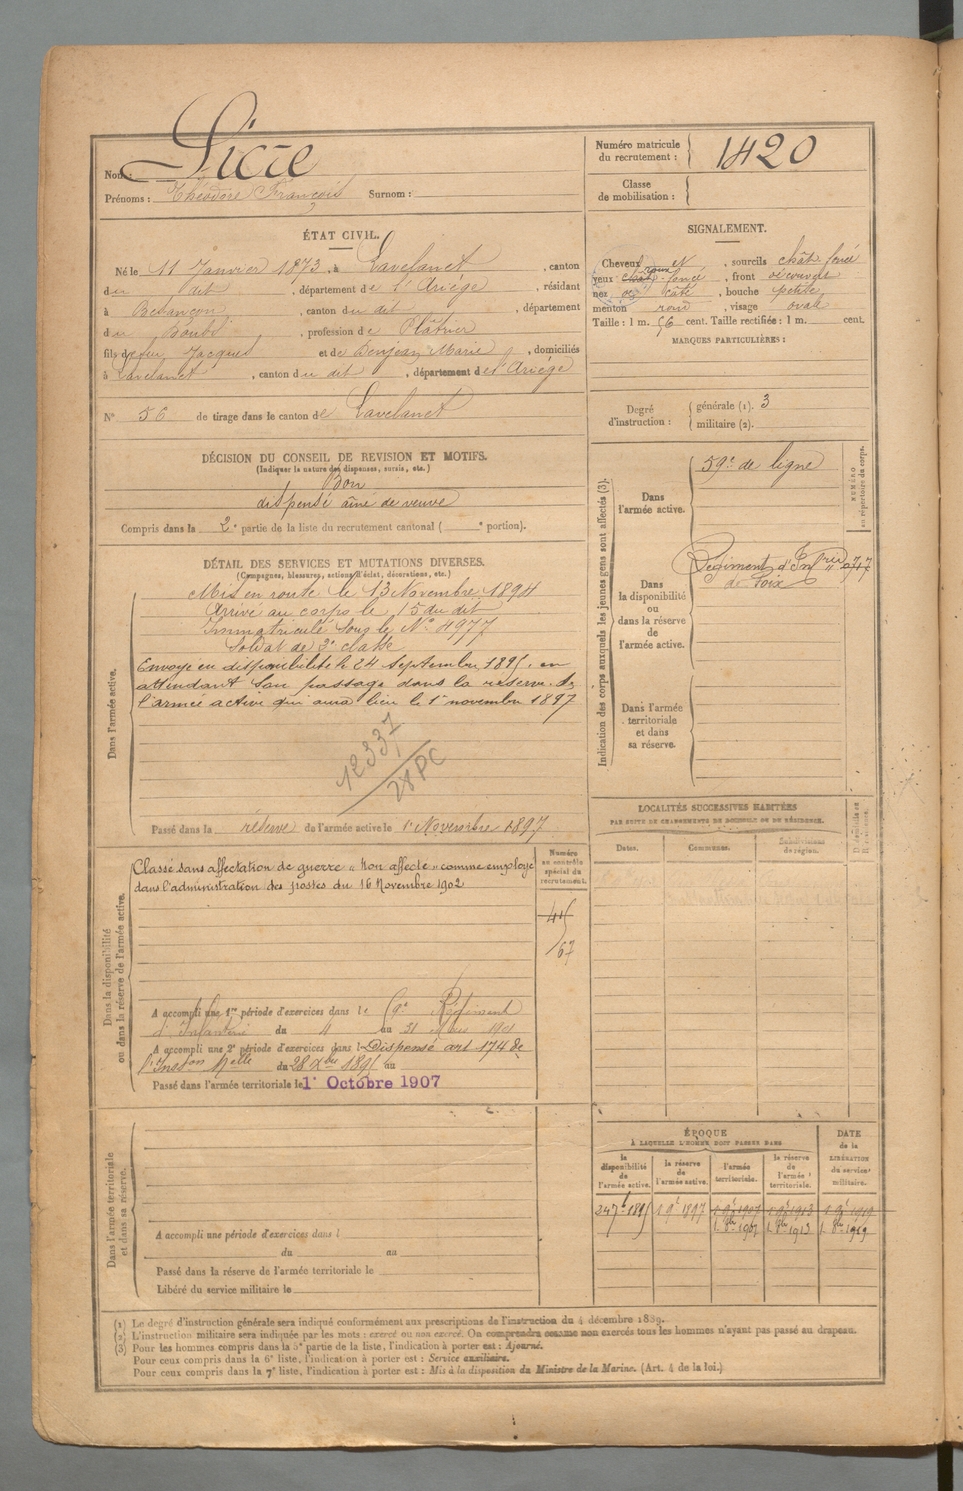 Nom: Sicre
Prénoms : Théodore François Surnom :
Numéro matricule du recrutement : 1420
Classe de mobilisation :
ÉTAT CIVIL.
Né le 11 Janvier 1873, à Lavelanet, canton
du dit, département de l'Ariège, résidant
à Besançon, canton du dit, département
du Doubs, profession de Plâtrier
fils de feu Jacques et de Bonjean Marie, domiciliés
à Lavelanet, canton du dit, département de l'Ariège
N° 56 de tirage dans le canton de Lavelanet
SIGNALEMENT.
Cheveux N, sourcils chât. foncé
yeux chât. roux foncé, front découvert
nez côté, bouche petite,
menton rond, visage ovale
Taille : 1 m. 56 cent. Taille rectifiée : 1 m. cent.
MARQUES PARTICULIÈRES :
Degré d'instruction : générale (1). 3
militaire (2).
DÉCISION DU CONSEIL DE REVISION ET MOTIFS.
(Indiquer la nature des dispenses, sursis, etc.)
Bon
dispensé aîné de veuve
Compris dans la 2e partie de la liste du recrutement cantonal ( e portion).
DÉTAIL DES SERVICES ET MUTATIONS DIVERSES.
(Campagnes, blessures, actions d'éclat, décorations, etc.)
Dans l'armée active.
Mis en route le 13 Novembre 1894
Arrivé au corps le 15 du dit
Immatriculé sous le N° 4977
Soldat de 2e classe
Envoyé en disponibilité le 24 septembre 1895, en
attendant son passage dans la réserve de
l'armée active qui aura lieu le 1er novembre 1897
12337
28 PC
Passé dans la réserve de l'armée active le 1er Novembre 1897
Indication des corps auxquels les jeunes gens sont affectés (3).
NUMÉRO au répertoire du corps.
Dans l'armée active.
59e de ligne
Dans la disponibilité ou dans la réserve de l'armée active.
Régiment d'Infrie
de Foix
Dans l'armée territoriale et dans sa réserve.
LOCALITÉS SUCCESSIVES HABITÉES
PAR SUITE DE CHANGEMENTS DE DOMICILE OU DE RÉSIDENCE.
Dates. Communes. Subdivisions de région. D domicile ou R résidence.
Dans la disponibilité ou dans la réserve de l'armée active.
Numéro au contrôle spécial du recrutement.
Classé sans affectation de guerre "Non affecté" comme employé
dans l'administration des postes du 16 Novembre 1902
67
A accompli une 1re période d'exercices dans le Régiment
d'Infanterie du 4 au 31 mars 1901
A accompli une 2e période d'exercices dans l Dispensé art 174 de
l'Inston Melle du 28 Xbre 1895 au
Passé dans l'armée territoriale le 1er Octobre 1907
ÉPOQUE
À LAQUELLE L'HOMME DOIT PASSER DANS
DATE de la LIBÉRATION du service militaire.
la disponibilité de l'armée active. la réserve de l'armée active. l'armée territoriale. la réserve de l'armée territoriale.
24 7bre 1895 1 9bre 1897 1 9bre 1907 1 9bre 1913 1 9bre 1919
1. 8bre 1907 1. 8bre 1913 1. 8bre 1919
Dans l'armée territoriale et dans sa réserve.
A accompli une période d'exercices dans l
du au
Passé dans la réserve de l'armée territoriale le
Libéré du service militaire le
(1) Le degré d'instruction générale sera indiqué conformément aux prescriptions de l'instruction du 4 décembre 1889.
(2) L'instruction militaire sera indiquée par les mots : exercé ou non exercé. On comprendra comme non exercés tous les hommes n'ayant pas passé au drapeau.
(3) Pour les hommes compris dans la 5e partie de la liste, l'indication à porter est : Ajourné.
Pour ceux compris dans la 6e liste, l'indication à porter est : Service auxiliaire.
Pour ceux compris dans la 7e liste, l'indication à porter est : Mis à la disposition du Ministre de la Marine. (Art. 4 de la loi.)